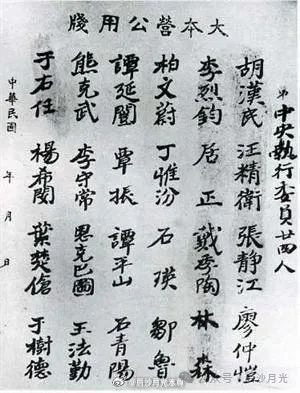 大本營公用牋
中央執行委員廿四人
胡漢民 汪精衛 張静江 廖仲愷
李烈鈞 居正 戴季陶 林森
柏文蔚 丁惟汾 石瑛 鄒魯
譚延闓 覃振 譚平山 石青陽
熊克武 李守常 恩克巴圖 王法勤
于右任 楊希閔 葉楚傖 于樹德
中華民國 年 月 日
@后沙月光本尊
公众号 后沙月光